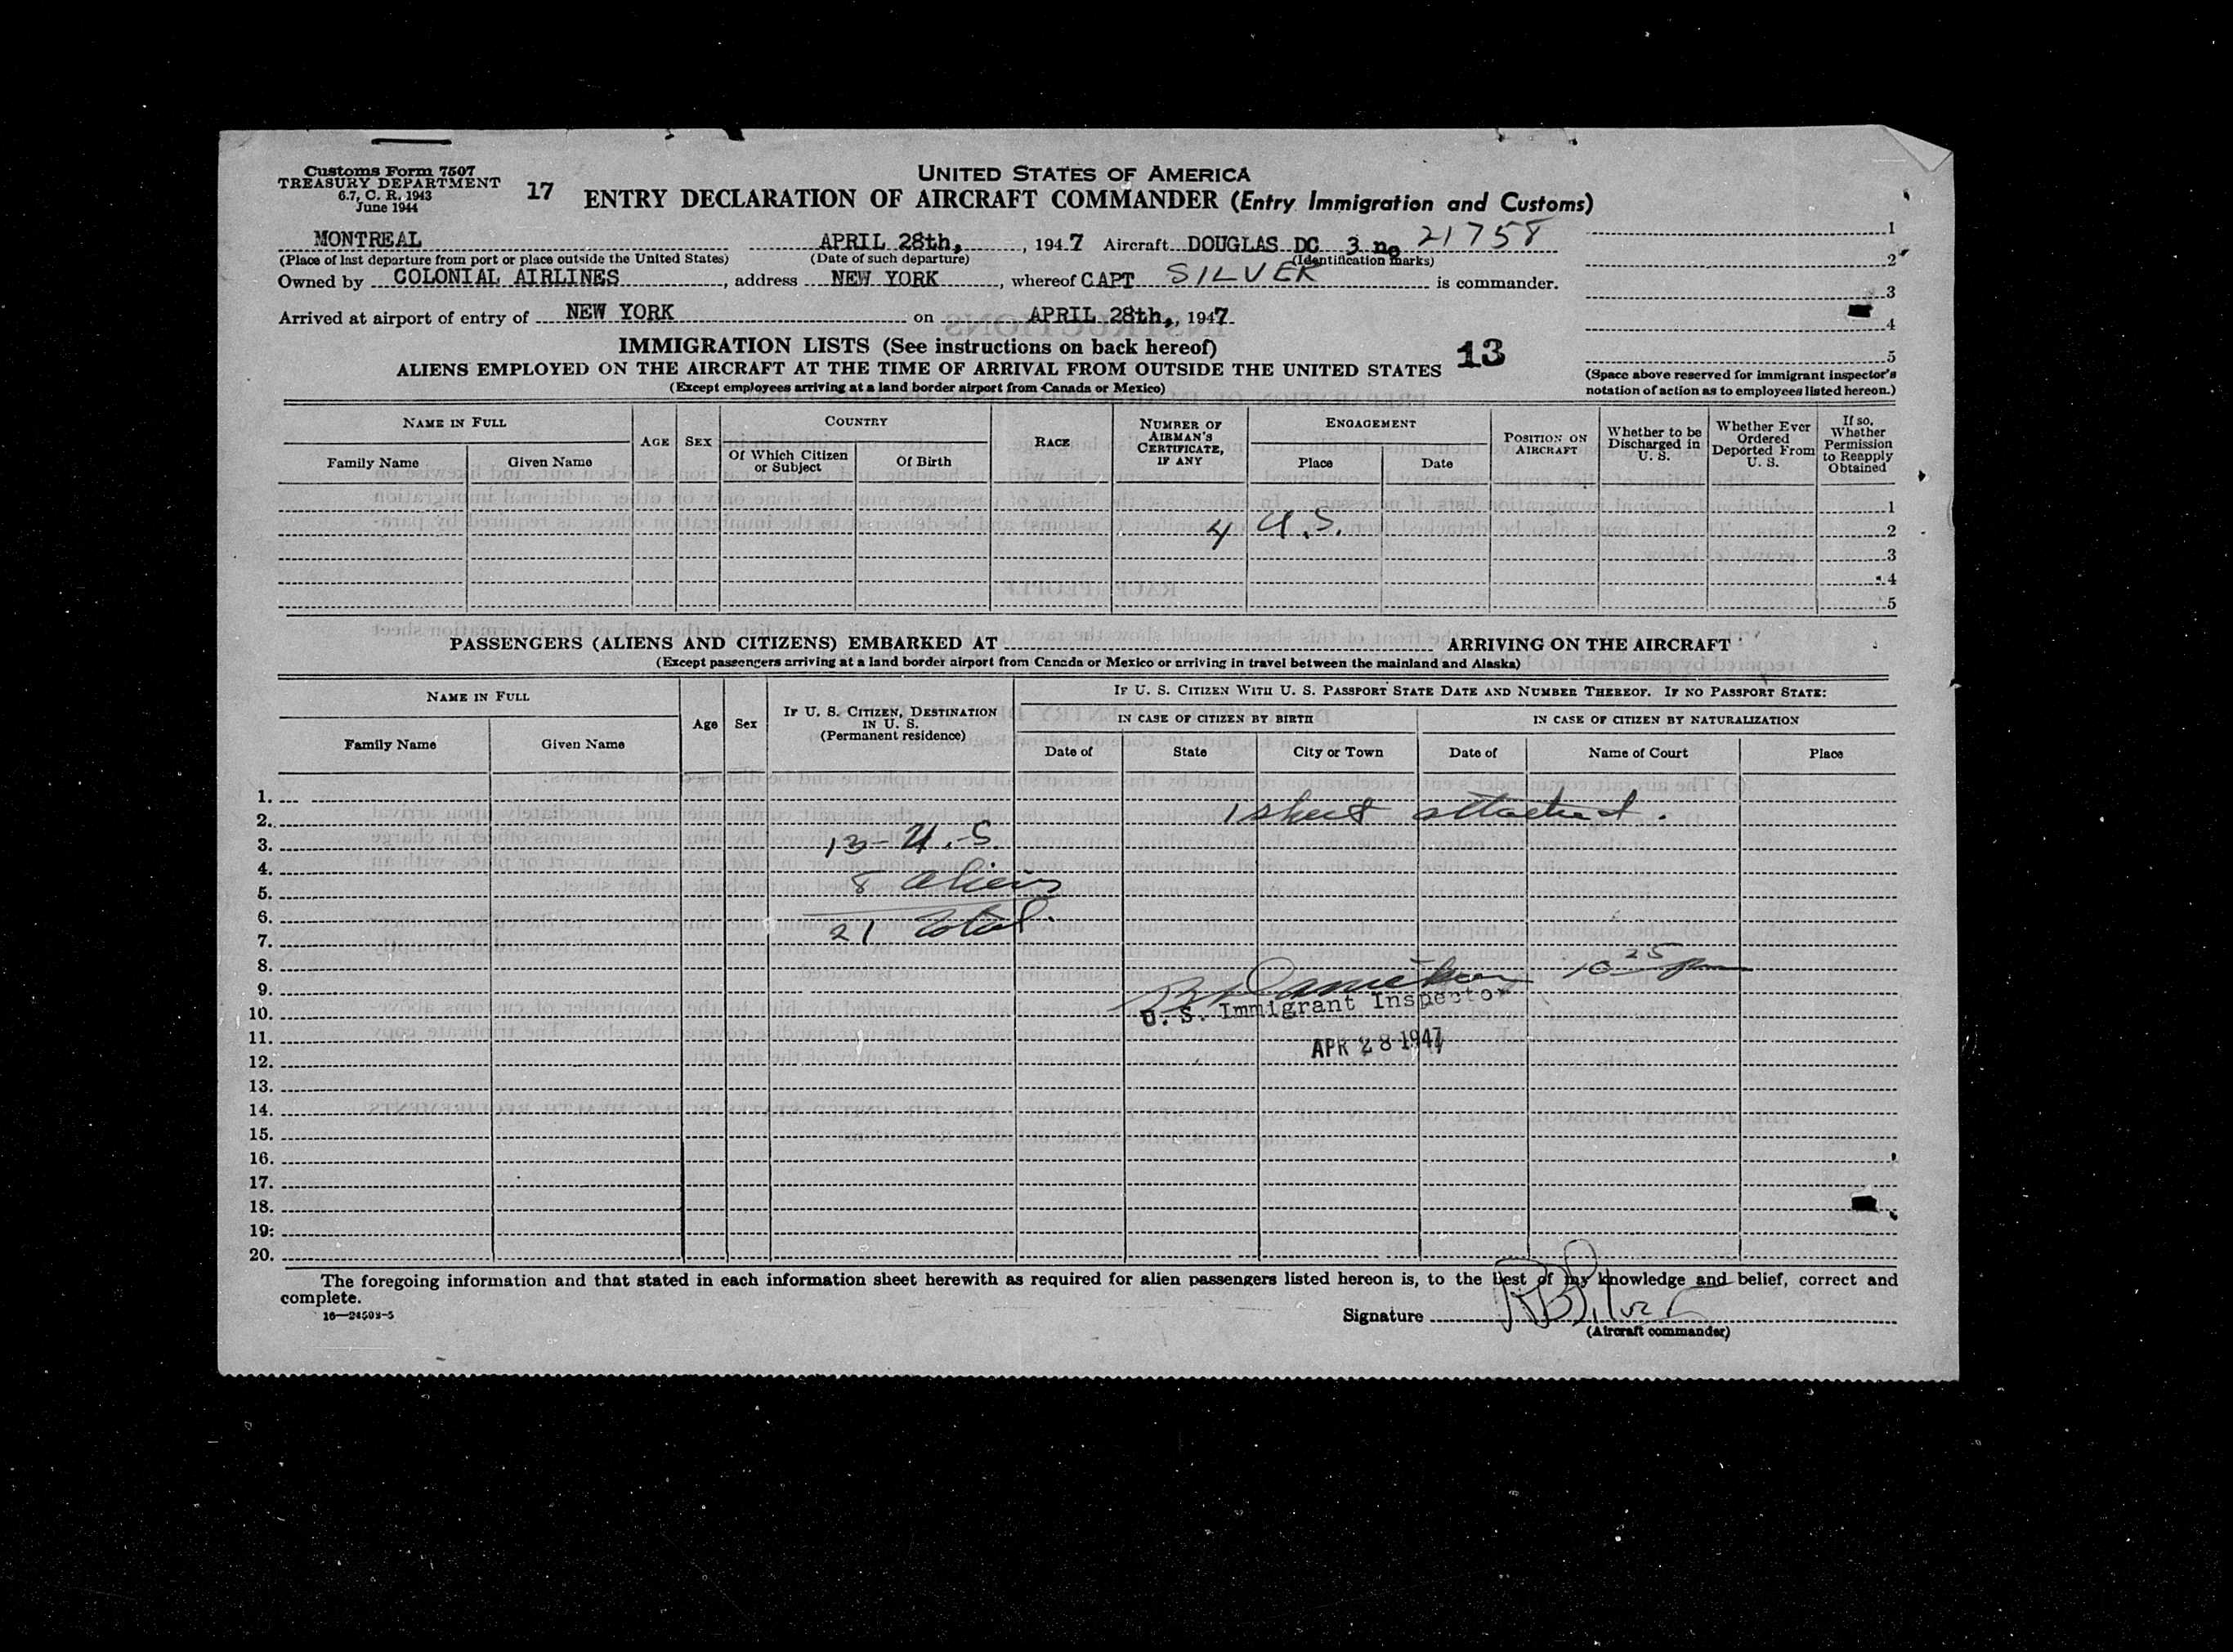 Customs Form 7507
TREASURY DEPARTMENT
6.7, C. R. 1943
June 1944
17
UNITED STATES OF AMERICA
ENTRY DECLARATION OF AIRCRAFT COMMANDER (Entry Immigration and Customs)
MONTREAL APRIL 28th, , 1947 Aircraft DOUGLAS DC 3 no 21758
(Place of last departure from port or place outside the United States) (Date of such departure) (Identification marks)
Owned by COLONIAL AIRLINES , address NEW YORK , whereof CAPT SILVER is commander.
Arrived at airport of entry of NEW YORK on APRIL 28th, , 1947
1
2
3
4
5
(Space above reserved for immigrant inspector's
notation of action as to employees listed hereon.)
IMMIGRATION LISTS (See instructions on back hereof)
13
ALIENS EMPLOYED ON THE AIRCRAFT AT THE TIME OF ARRIVAL FROM OUTSIDE THE UNITED STATES
(Except employees arriving at a land border airport from Canada or Mexico)
NAME IN FULL
Family Name
Given Name
AGE
SEX
COUNTRY
Of Which Citizen
or Subject
Of Birth
RACE
NUMBER OF
AIRMAN'S
CERTIFICATE,
IF ANY
ENGAGEMENT
Place
Date
POSITION ON
AIRCRAFT
Whether to be
Discharged in
U. S.
Whether Ever
Ordered
Deported From
U. S.
If so,
Whether
Permission
to Reapply
Obtained
1
4 U.S. 2
3
4
5
PASSENGERS (ALIENS AND CITIZENS) EMBARKED AT ARRIVING ON THE AIRCRAFT
(Except passengers arriving at a land border airport from Canada or Mexico or arriving in travel between the mainland and Alaska)
NAME IN FULL
Family Name
Given Name
Age
Sex
IF U. S. CITIZEN, DESTINATION
IN U. S.
(Permanent residence)
IF U. S. CITIZEN WITH U. S. PASSPORT STATE DATE AND NUMBER THEREOF. IF NO PASSPORT STATE:
IN CASE OF CITIZEN BY BIRTH
Date of
State
City or Town
IN CASE OF CITIZEN BY NATURALIZATION
Date of
Name of Court
Place
1. 1 sheet attached.
2.
3. 13 - U.S.
4.
5. 8 aliens
6.
7. 21 total.
8. 10 25 pm
9.
10. U. S. Immigrant Inspector
11. APR 28 1947
12.
13.
14.
15.
16.
17.
18.
19.
20.
The foregoing information and that stated in each information sheet herewith as required for alien passengers listed hereon is, to the best of my knowledge and belief, correct and
complete.
16—24593-5
Signature RB Silver
(Aircraft commander)